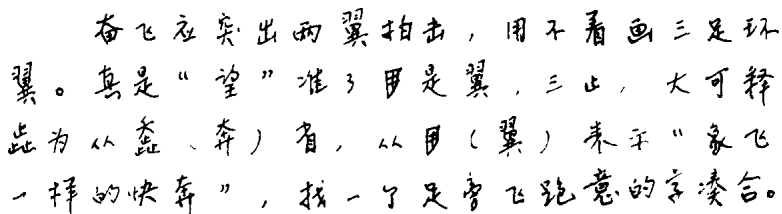 奋飞应突出两翼拍击，用不着画三足环
翼。真是“望”准了 是翼，三止，大可释
为从 、奔）省，从 （翼）表示“象飞
一样的快奔”，找一个足旁飞跑意的字凑合。